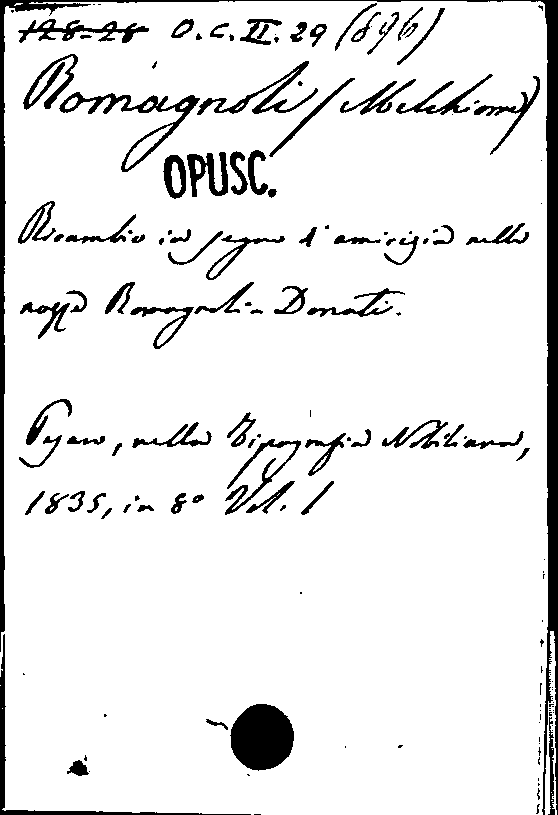 128-28 O.C.II.29 (896)
Romagnoli (Melchiorre)
OPUSC.
Ricambio in segno d'amicizia nelle
nozze Romagnoli-Donati.
Pesaro, nella Tipografia Nobiliana,
1835, in 8° Vol. 1